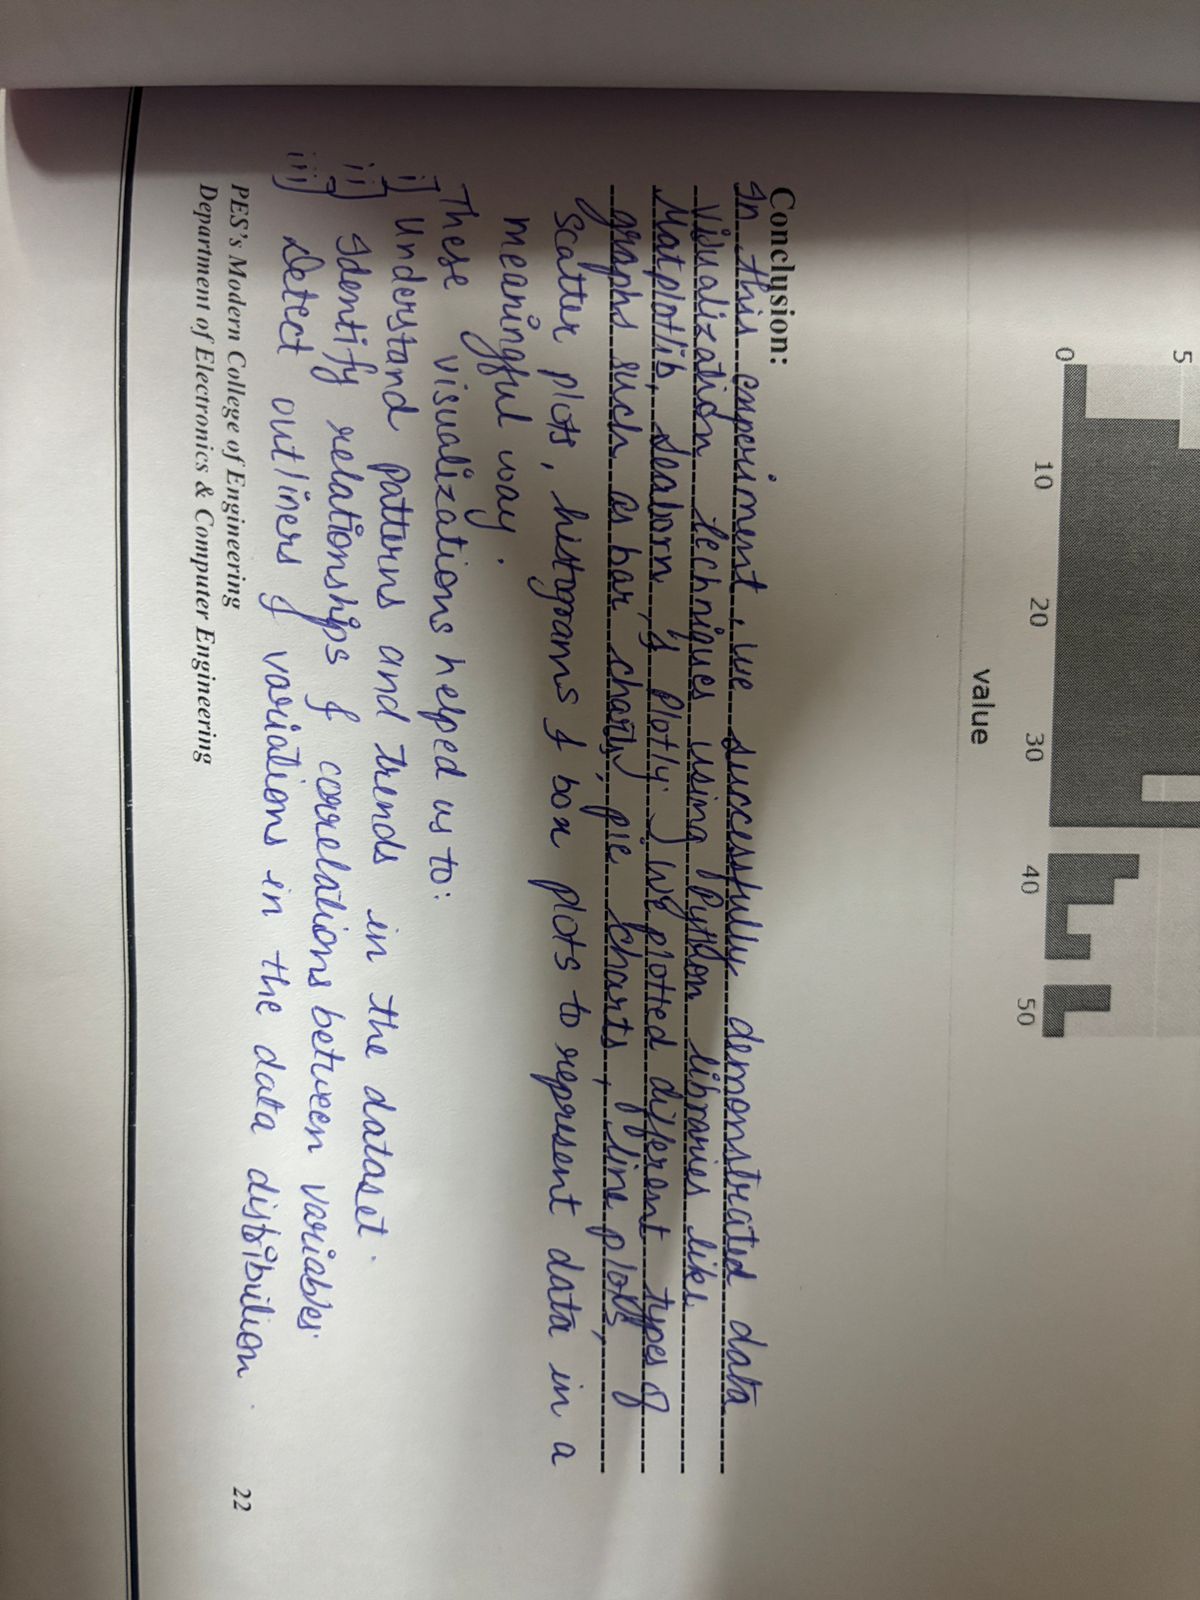 5
0
10 20 30 40 50
value
Conclusion:
In this experiment, we successfully demonstrated data
visualization techniques using Python libraries like
Matplotlib, Seaborn, & Plotly. we plotted different types of
graphs such as bar, charts, pie charts, line plots,
scatter plots, histograms & box plots to represent data in a
meaningful way.
These visualizations helped us to:
i] Understand patterns and trends in the dataset.
ii] Identify relationships & correlations between variables
iii] Detect outliners & variations in the data distribution.
PES's Modern College of Engineering
Department of Electronics & Computer Engineering
22